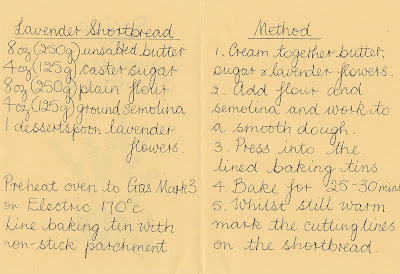 Lavender Shortbread
8oz (250g) unsalted butter
4oz (125g) caster sugar
8oz (250g) plain flour
4oz (125g) ground semolina
1 dessertspoon lavender
flowers.
Preheat oven to Gas Mark 3
or Electric 170°c
Line baking tin with
non-stick parchment
Method
1. Cream together butter,
sugar & lavender flowers.
2. Add flour and
semolina and work to
a smooth dough.
3. Press into the
lined baking tins
4. Bake for 25-30mins
5. Whilst still warm
mark the cutting lines
on the shortbread.